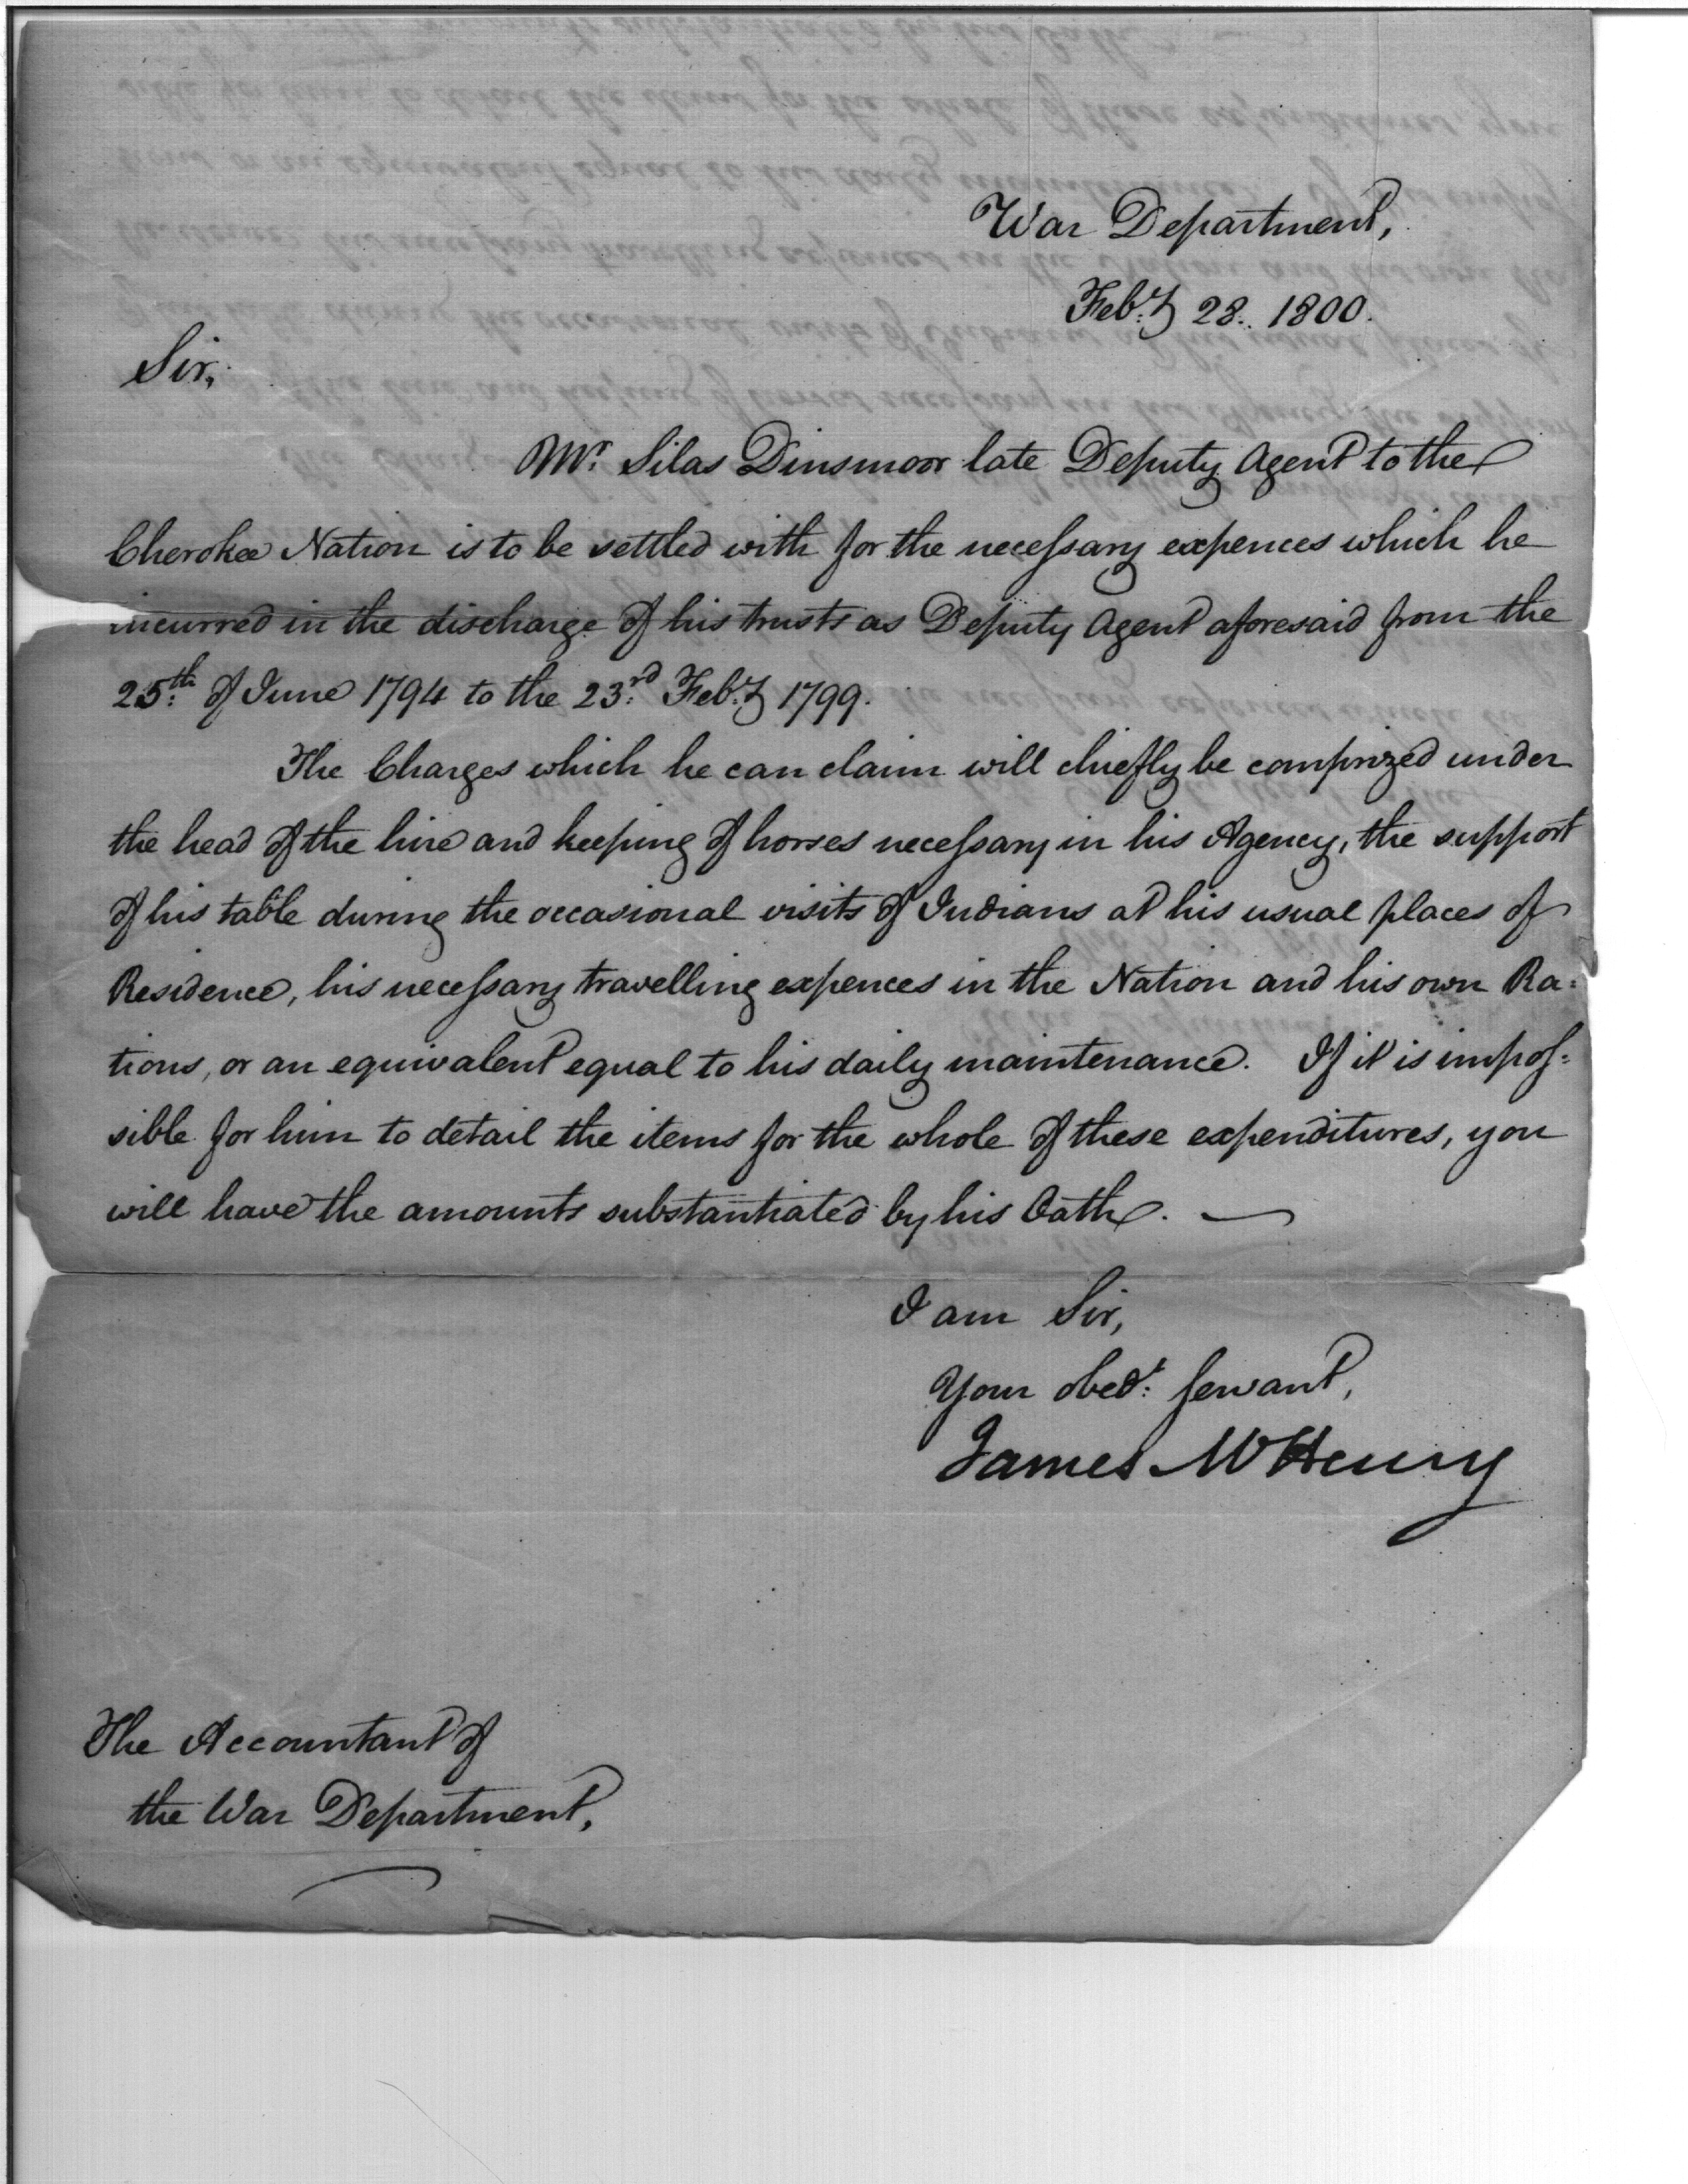 War Department,
Feb.y 28. 1800.
Sir,
Mr. Silas Dinsmoor late Deputy Agent to the
Cherokee Nation is to be settled with for the necessary expences which he
incurred in the discharge of his trusts as Deputy Agent aforesaid from the
25th. of June 1794 to the 23rd. Feb.y 1799.
The Charges which he can claim will chiefly be comprized under
the head of the hire and keeping of horses necessary in his Agency, the support
of his table during the occasional visits of Indians at his usual places of
Residence, his necessary travelling expences in the Nation and his own Ra=
tions, or an equivalent equal to his daily maintenance. If it is impos=
sible for him to detail the items for the whole of these expenditures, you
will have the amounts substantiated by his Oath. —
I am Sir,
Your obed.t servant,
James McHenry
The Accountant of
the War Department,